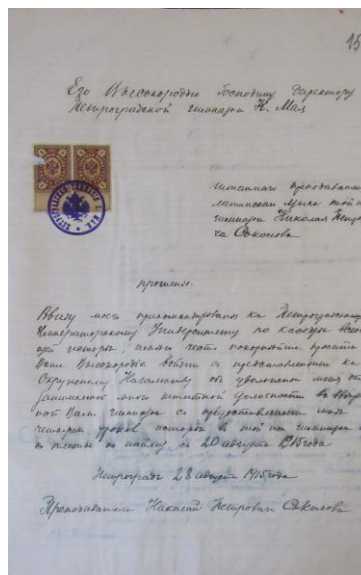 15
Его Высокородію Господину Директору
Петроградской гимназіи К. Мая
штатнаго преподавателя
латинскаго языка той же
гимназіи Николая Петро
ча Соколова
прошеніе.
Ввиду моего прикомандированія къ Петроградскому
Императорскому Университету по каѳедрѣ
исторіи, имѣю честь покорнѣйше просить
Ваше Высокородіе войти съ представленіемъ къ
Окружному Начальству объ увольненіи меня отъ
занимаемой мною штатной должности во ввѣрен
ной Вамъ гимназіи съ предоставленіемъ мнѣ
уроковъ исторіи въ той же гимназіи
съ платы по найму, съ 20 августа 1915 года
Петроградъ 28 августа 1915 года
Преподаватель Николай Петровичъ Соколовъ